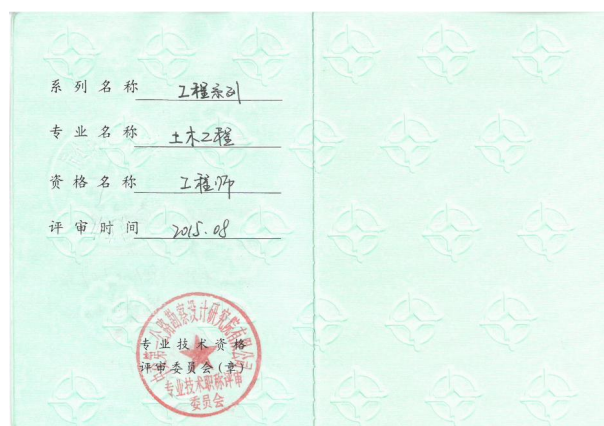 系列名称 工程系列
专业名称 土木工程
资格名称 工程师
评审时间 2015.08
专业技术资格
评审委员会(章)
公路勘察设计研究院有限公司
专业技术职称评审
委员会